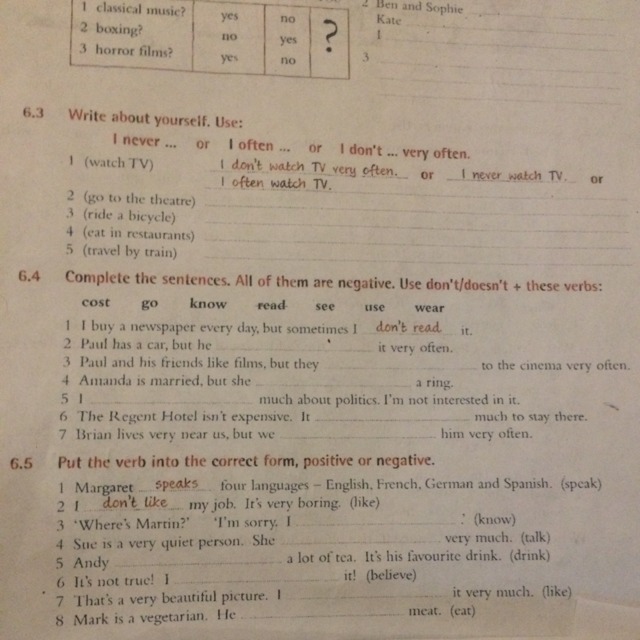 1 classical music? yes no
2 boxing? no yes ?
3 horror films? yes no
2 Ben and Sophie
Kate
I
3
6.3 Write about yourself. Use:
I never ... or I often ... or I don't ... very often.
1 (watch TV) I don't watch TV very often. or I never watch TV. or
I often watch TV.
2 (go to the theatre)
3 (ride a bicycle)
4 (eat in restaurants)
5 (travel by train)
6.4 Complete the sentences. All of them are negative. Use don't/doesn't + these verbs:
cost go know read see use wear
1 I buy a newspaper every day, but sometimes I don't read it.
2 Paul has a car, but he it very often.
3 Paul and his friends like films, but they to the cinema very often.
4 Amanda is married, but she a ring.
5 I much about politics. I'm not interested in it.
6 The Regent Hotel isn't expensive. It much to stay there.
7 Brian lives very near us, but we him very often.
6.5 Put the verb into the correct form, positive or negative.
1 Margaret speaks four languages – English, French, German and Spanish. (speak)
2 I don't like my job. It's very boring. (like)
3 'Where's Martin?' 'I'm sorry. I .' (know)
4 Sue is a very quiet person. She very much. (talk)
5 Andy a lot of tea. It's his favourite drink. (drink)
6 It's not true! I it! (believe)
7 That's a very beautiful picture. I it very much. (like)
8 Mark is a vegetarian. He meat. (eat)